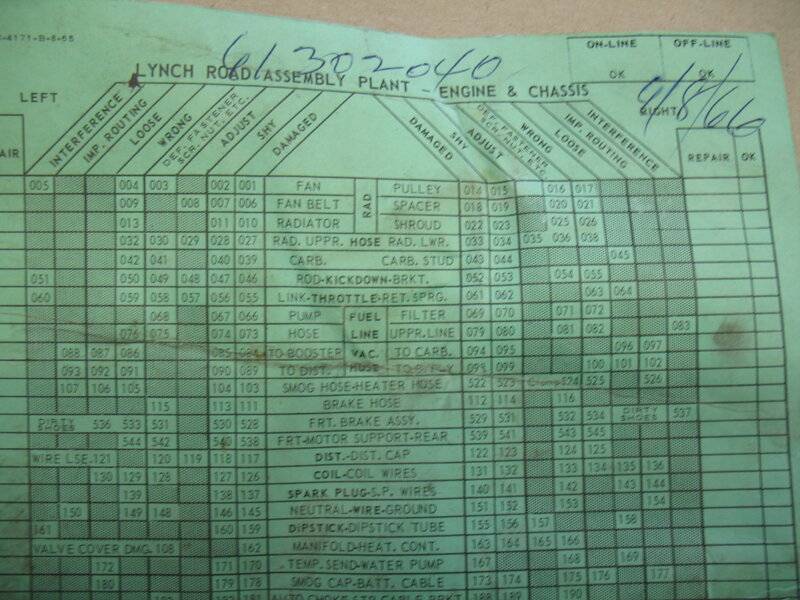 -4171-B-8-65
61 302040
LYNCH ROAD ASSEMBLY PLANT - ENGINE & CHASSIS
ON-LINE OFF-LINE
OK OK
9/8/66
LEFT RIGHT
INTERFERENCE IMP. ROUTING LOOSE WRONG DEF. FASTENER SCR. NUT, ETC. ADJUST SHY DAMAGED DAMAGED SHY ADJUST DEF. FASTENER SCR. NUT, ETC. WRONG LOOSE IMP. ROUTING INTERFERENCE
AIR REPAIR OK
005 004 003 002 001 FAN RAD PULLEY 014 015 016 017
009 008 007 006 FAN BELT SPACER 018 019 020 021
013 011 010 RADIATOR SHROUD 022 023 025 026
032 030 029 028 027 RAD. UPPR. HOSE RAD. LWR. 033 034 035 036 038
042 041 040 039 CARB. CARB. STUD 043 044 045
051 050 049 048 047 046 ROD-KICKDOWN-BRKT. 052 053 054 055
060 059 058 057 056 055 LINK-THROTTLE-RET. SPRG. 061 062 063 064
068 067 066 PUMP FUEL FILTER 069 070 071 072
076 075 074 073 HOSE LINE UPPR.LINE 079 080 081 082 083
088 087 086 085 084 TO BOOSTER VAC. TO CARB. 094 095 096 097
093 092 091 090 089 TO DIST. HOSE 099 100 101 102
107 106 105 104 103 SMOG HOSE-HEATER HOSE 522 523 Clamp 524 525 526
115 113 111 BRAKE HOSE 112 114 116
DIRTY SHOES 536 533 531 530 528 FRT. BRAKE ASSY. 529 531 532 534 DIRTY SHOES 537
544 542 540 538 FRT-MOTOR SUPPORT-REAR 539 541 543 545
WIRE LSE. 121 120 119 118 117 DIST.-DIST. CAP 122 123 124 125
130 129 128 127 126 COIL-COIL WIRES 131 132 133 134 135 136
139 138 137 SPARK PLUG-S.P. WIRES 140 141 142 143 144
150 149 148 146 145 NEUTRAL-WIRE-GROUND 151 152 153 154
161 160 159 DIPSTICK-DIPSTICK TUBE 155 156 157 158
VALVE COVER DMG. 108 162 MANIFOLD-HEAT. CONT. 163 164 165 166
172 171 170 TEMP. SEND-WATER PUMP 167 168 169
180 179 178 SMOG CAP-BATT. CABLE 173 174 175 176 177
182 181 AUTO CHOKE-STR CABLE BRKT 188 189 190